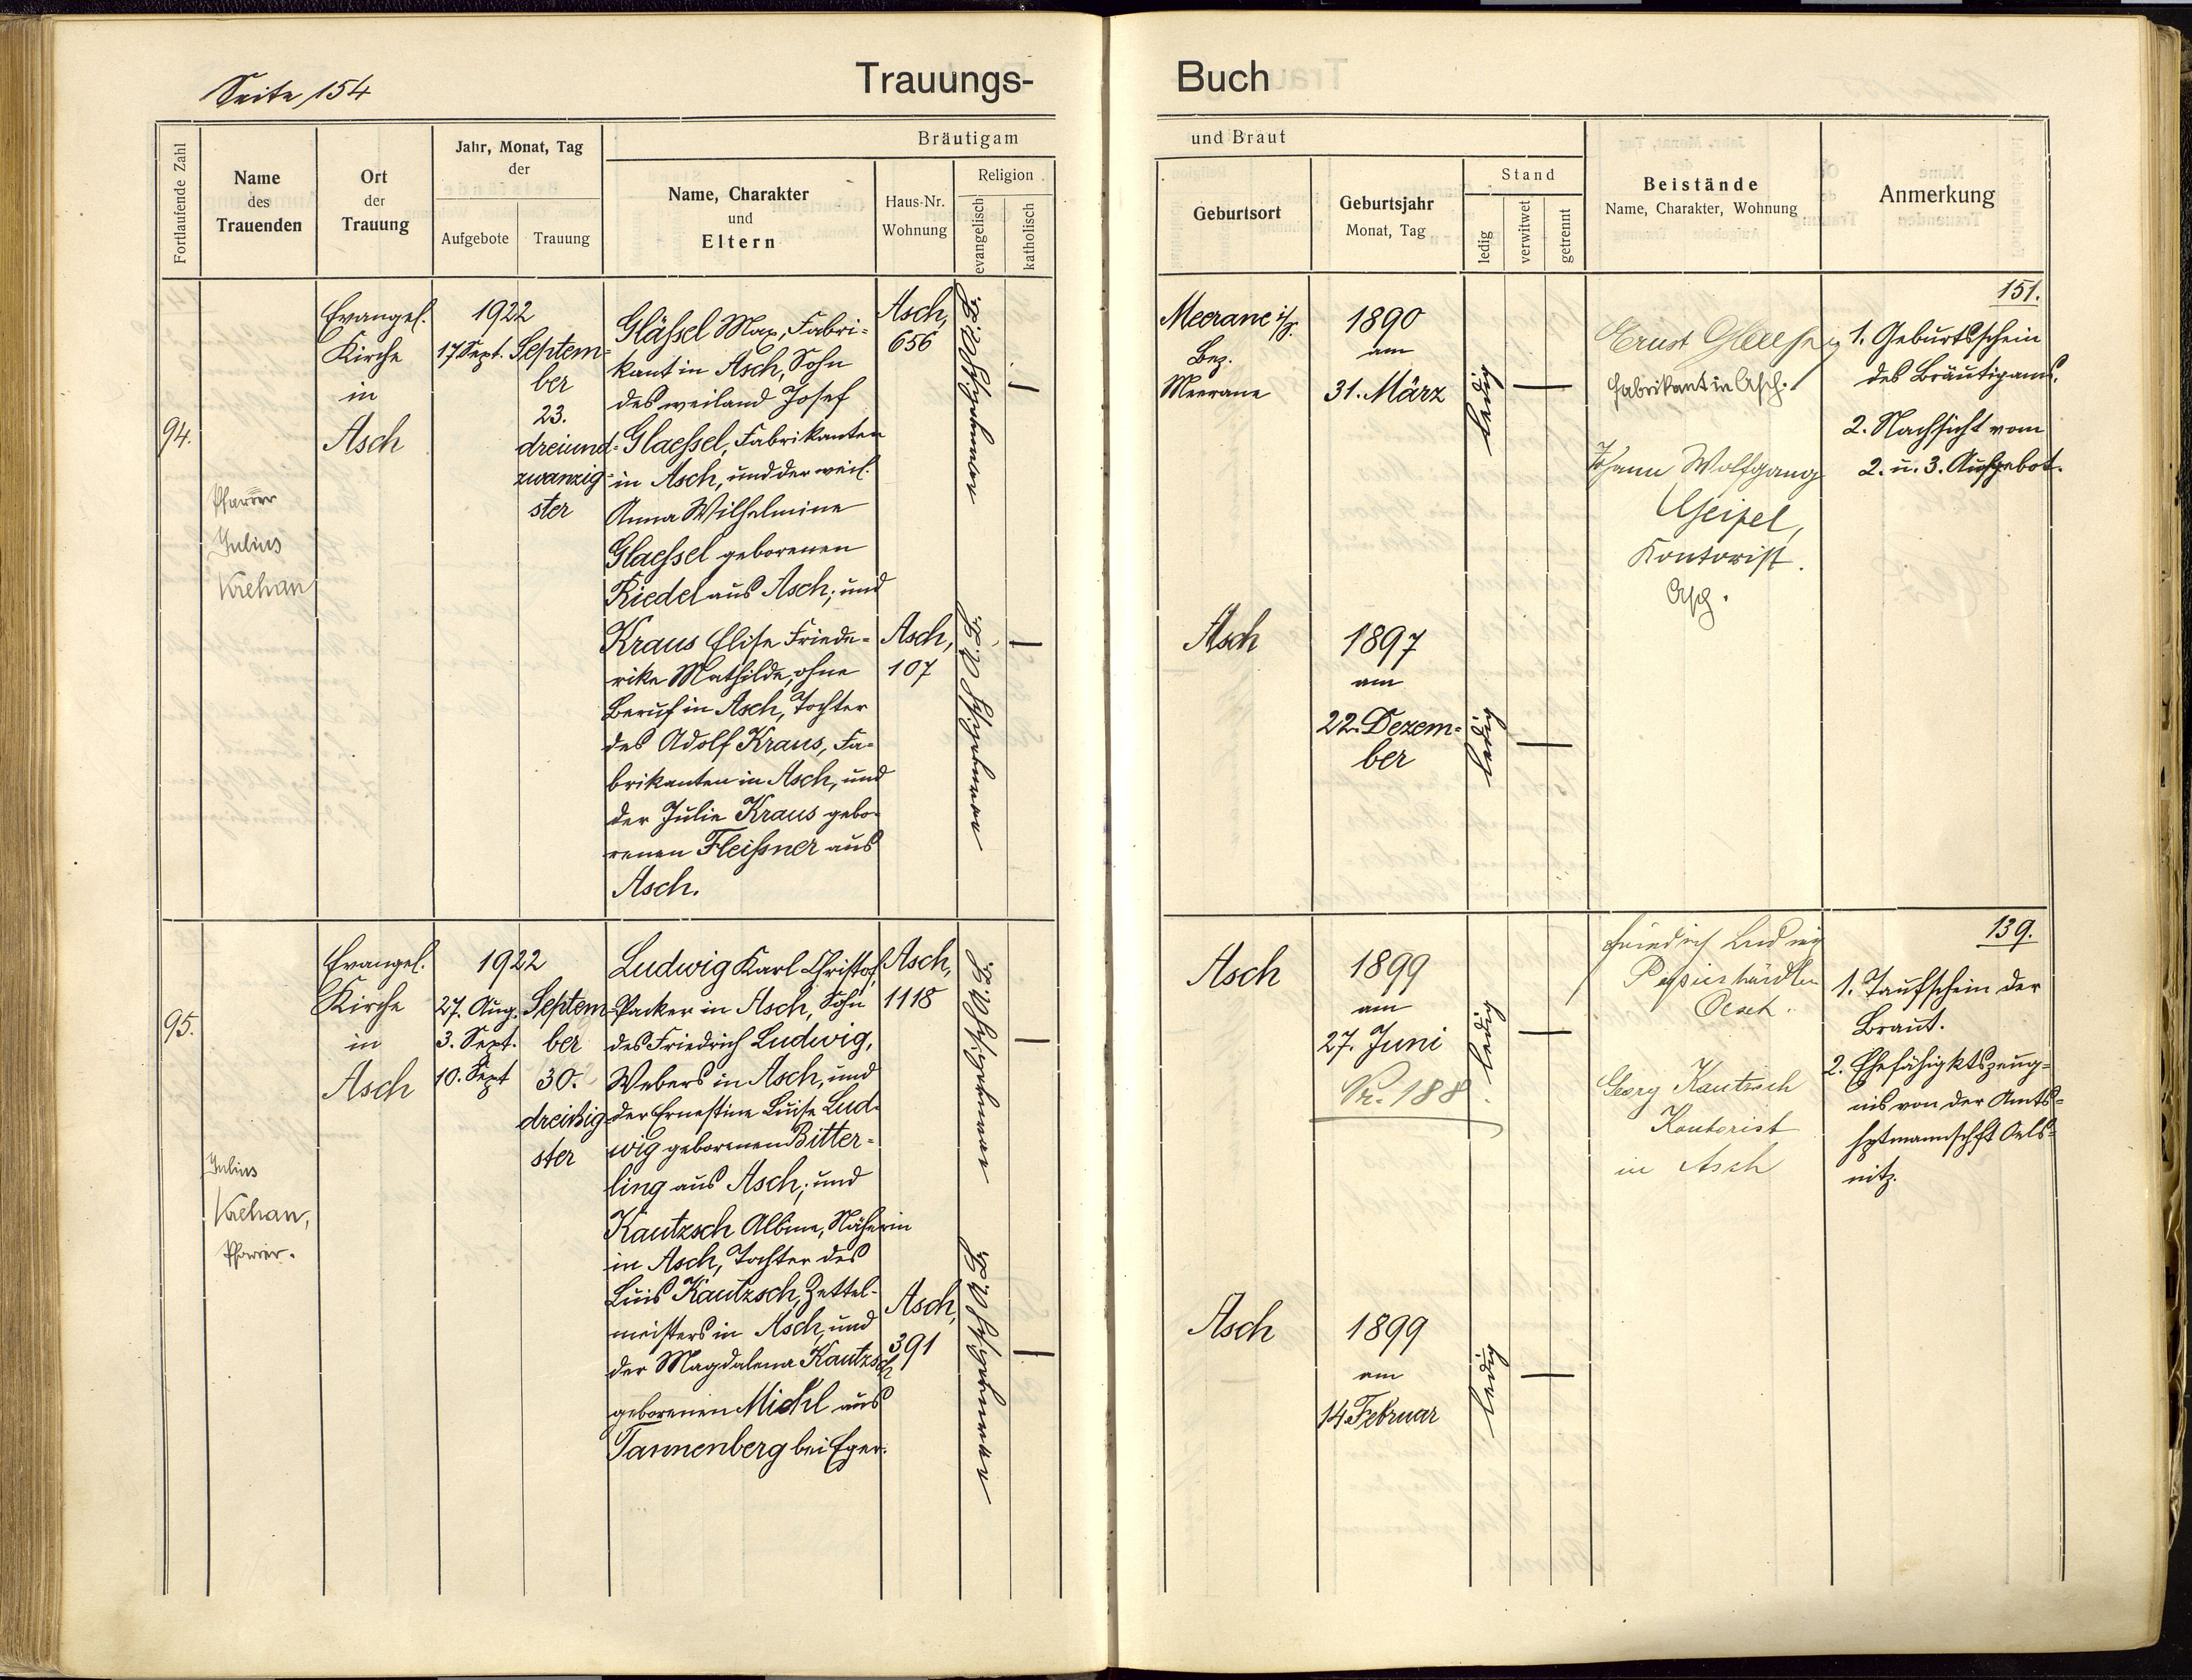 Seite 154
Trauungs-
Buch
Fortlaufende Zahl
Name
des
Trauenden
Ort
der
Trauung
Jahr, Monat, Tag
der
Aufgebote
Trauung
Bräutigam
Name, Charakter
und
Eltern
Haus-Nr.
Wohnung
Religion
evangelisch
katholisch
und Braut
Geburtsort
Geburtsjahr
Monat, Tag
Stand
ledig
verwitwet
getrennt
Beistände
Name, Charakter, Wohnung
Anmerkung
94.
Pfarrer
Julius
Krehan
Evangel.
Kirche
in
Asch
1922
17. Sept.
Septem-
ber
23.
dreiund-
zwanzig-
ster
Gläßsel Max, Fabri-
kant in Asch, Sohn
des weiland Josef
Glaeßsel, Fabrikanten
in Asch, und der weil.
Anna Wilhelmine
Glaeßsel geborenen
Riedel aus Asch; und
Asch,
656
Kraus Elise Friede-
rike Mathilde, ohne
Beruf in Asch, Tochter
des Adolf Kraus, Fa-
brikanten in Asch, und
der Julie Kraus gebo-
renen Fleißner aus
Asch.
Asch,
107
Meerane i/S.
Bez.
Meerane
1890
am
31. März
ledig
Asch
1897
am
22. Dezem-
ber
ledig
Fabrikant in Asch.
Johann Wolfgang
Geipel,
Kontorist.
Asch.
151.
1. Geburtsschein
des Bräutigams.
2. Nachsicht vom
2. u. 3. Aufgebot.
95.
Julius
Krehan,
Pfarrer.
Evangel.
Kirche
in
Asch
1922
27. Aug.
3. Sept.
10. Sept
Septem
ber
30.
dreißig-
ster
Ludwig Karl Christof,
Packer in Asch, Sohn
des Friedrich Ludwig,
Webers in Asch, und
der Ernestine Luise Lud-
wig geborenen Bitter-
ling aus Asch; und
Asch,
1118
Kautzsch Albine, Näherin
in Asch, Tochter des
Luis Kautzsch, Zettel-
meisters in Asch, und
der Magdalena Kautzsch
geborenen Michl aus
Tannenberg bei Eger.
Asch,
391
Asch
1899
am
27. Juni
Nr. 188
ledig
Asch
1899
am
14. Februar
ledig
Friedrich Ludwig
Papierhändler
Asch.
Georg Kautzsch
Kontorist
in Asch
139.
1. Taufschein der
Braut.
2. Ehefähigktszeug-
nis von der Amts-
hptmannschft Oels-
nitz.